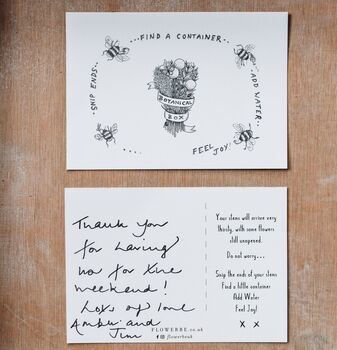 ...FIND A CONTAINER...
SNIP ENDS..
ADD WATER..
BOTANICAL
BOX
FEEL JOY!
....
Thank you
for having
us for the
weekend!
Lots of love
Amber and
Jim
Your stems will arrive very
thirsty, with some flowers
still unopened.
Do not worry...
Snip the ends of your stems
Find a little container
Add Water
Feel Joy!
X X
FLOWERBE.co.uk
flowerbeuk